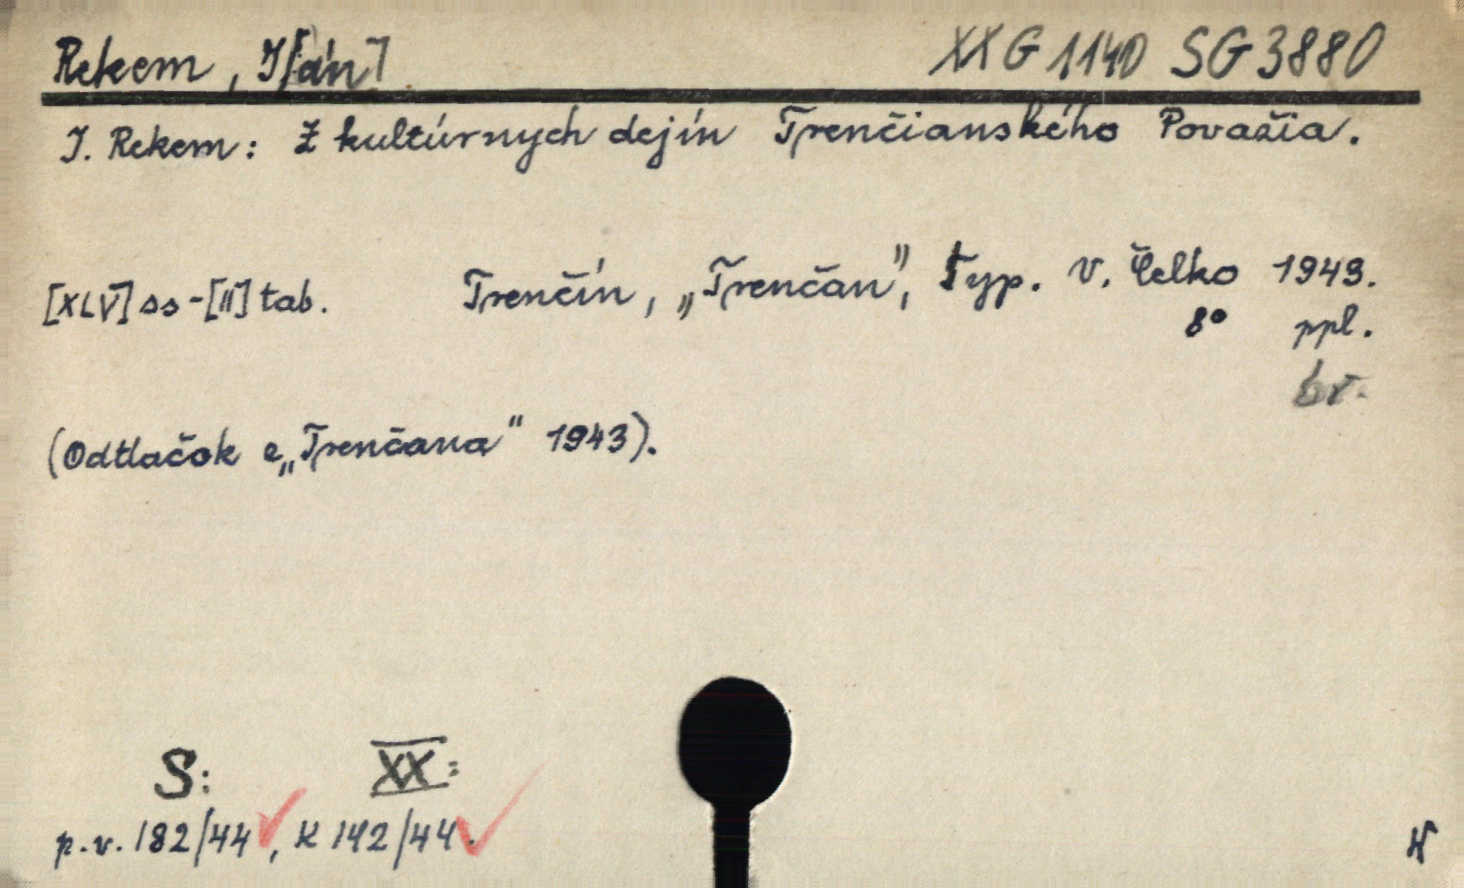 Rekem, J[án] XX G 1140 SG 3880
J. Rekem: Z kultúrnych dejín Trenčianského Považia.
[XLV] ss-[II] tab. Trenčín, „Trenčan”, Typ. V. Čelko 1943.
8° ppl.
br.
(Odtlačok z „Trenčana“ 1943).
S: XX:
p.v. 182/44, K 142/44.